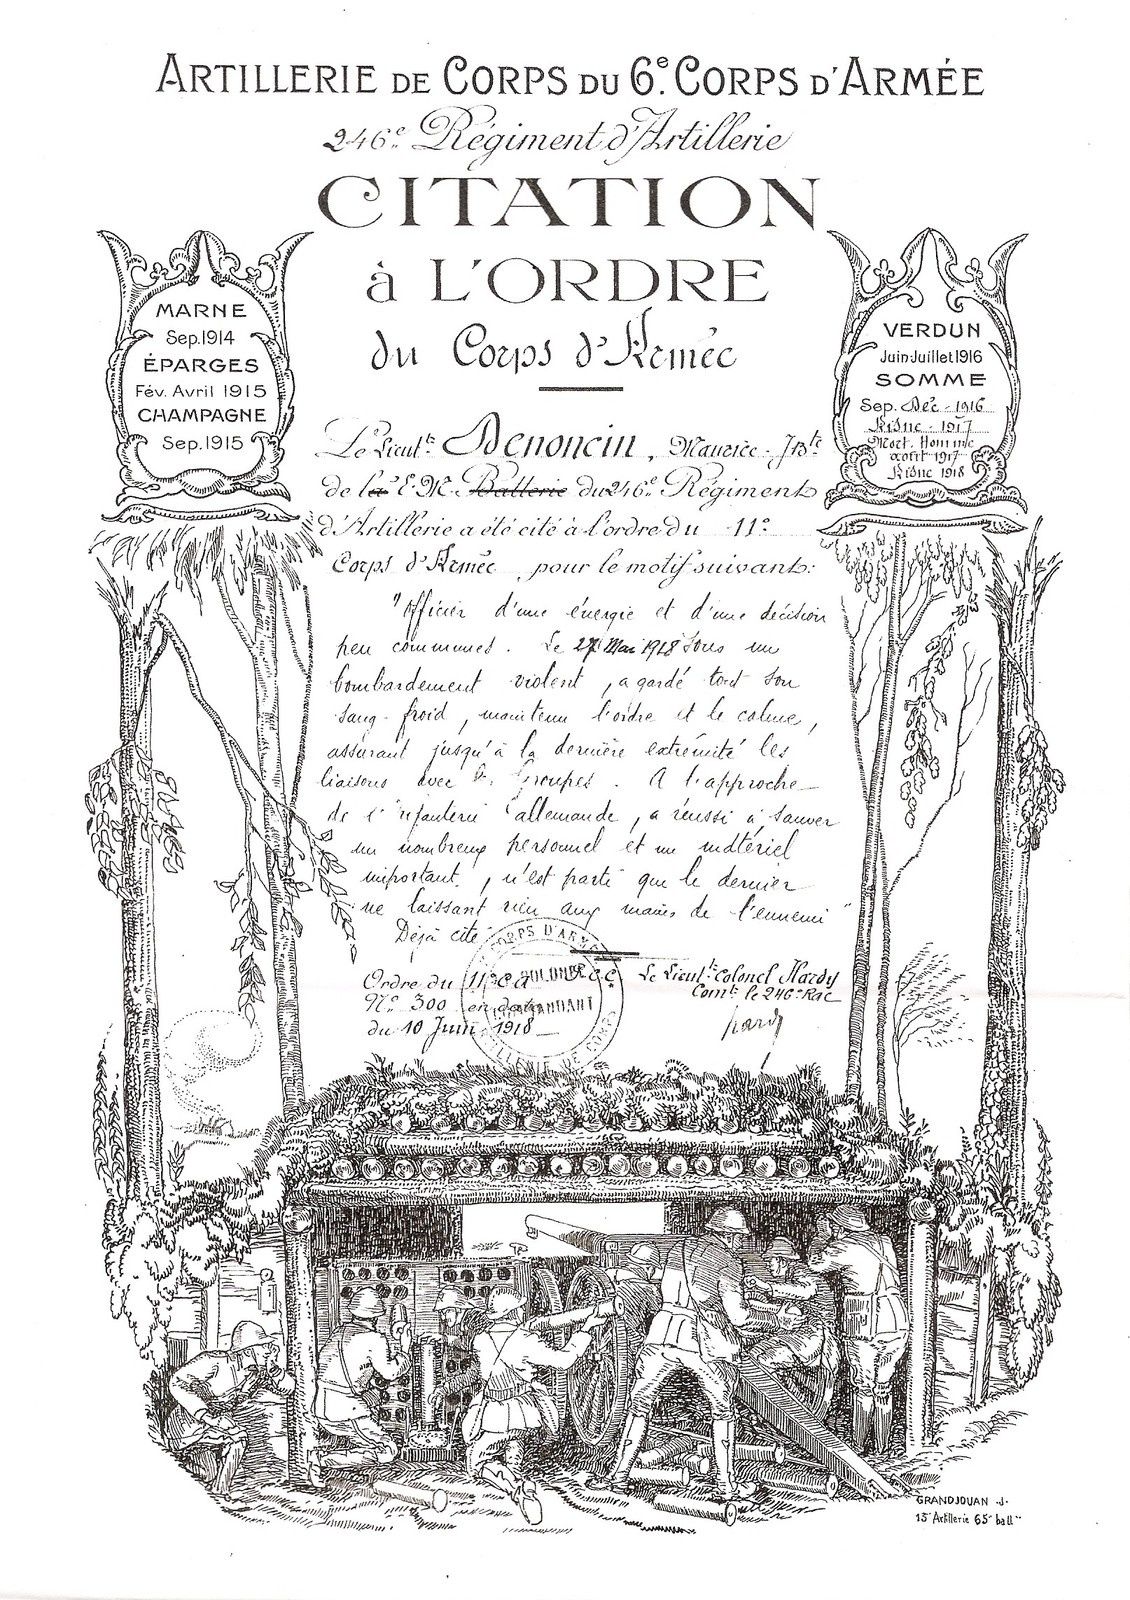 ARTILLERIE DE CORPS DU 6e. CORPS D'ARMÉE
246e. Régiment d'Artillerie
CITATION
à L'ORDRE
du Corps d'Armée
MARNE
Sep. 1914
ÉPARGES
Fév. Avril 1915
CHAMPAGNE
Sep. 1915
VERDUN
Juin Juillet 1916
SOMME
Sep. Déc - 1916
Aisne - 1917
Mort. Homme
août 1917
Aisne 1918
Le Lieutt. Denoncin, Maurice - JBte
de la E.M. Batterie du 246e. Régiment
d'Artillerie a été cité à l'ordre du 11e
Corps d'Armée, pour le motif suivant:
"Officier d'une énergie et d'une décision
peu communes. Le 27 Mai 1918 sous un
bombardement violent, a gardé tout son
sang-froid, maintenu l'ordre et le calme,
assurant jusqu'à la dernière extrémité les
liaisons avec les Groupes. A l'approche
de l'infanterie allemande, a réussi à sauver
un nombreux personnel et un matériel
important, n'est parti que le dernier
ne laissant rien aux mains de l'ennemi"
Déjà cité
Ordre du 11e C.A.
No. 300 en date
du 10 Juin 1918
CORPS D'ARMÉE
COMMANDANT
ARTILLERIE DE CORPS
Le Lieutt Colonel Hardy
Comt. le 246e Rac
Hardy
GRANDJOUAN .J.
15e Artillerie 65e batt